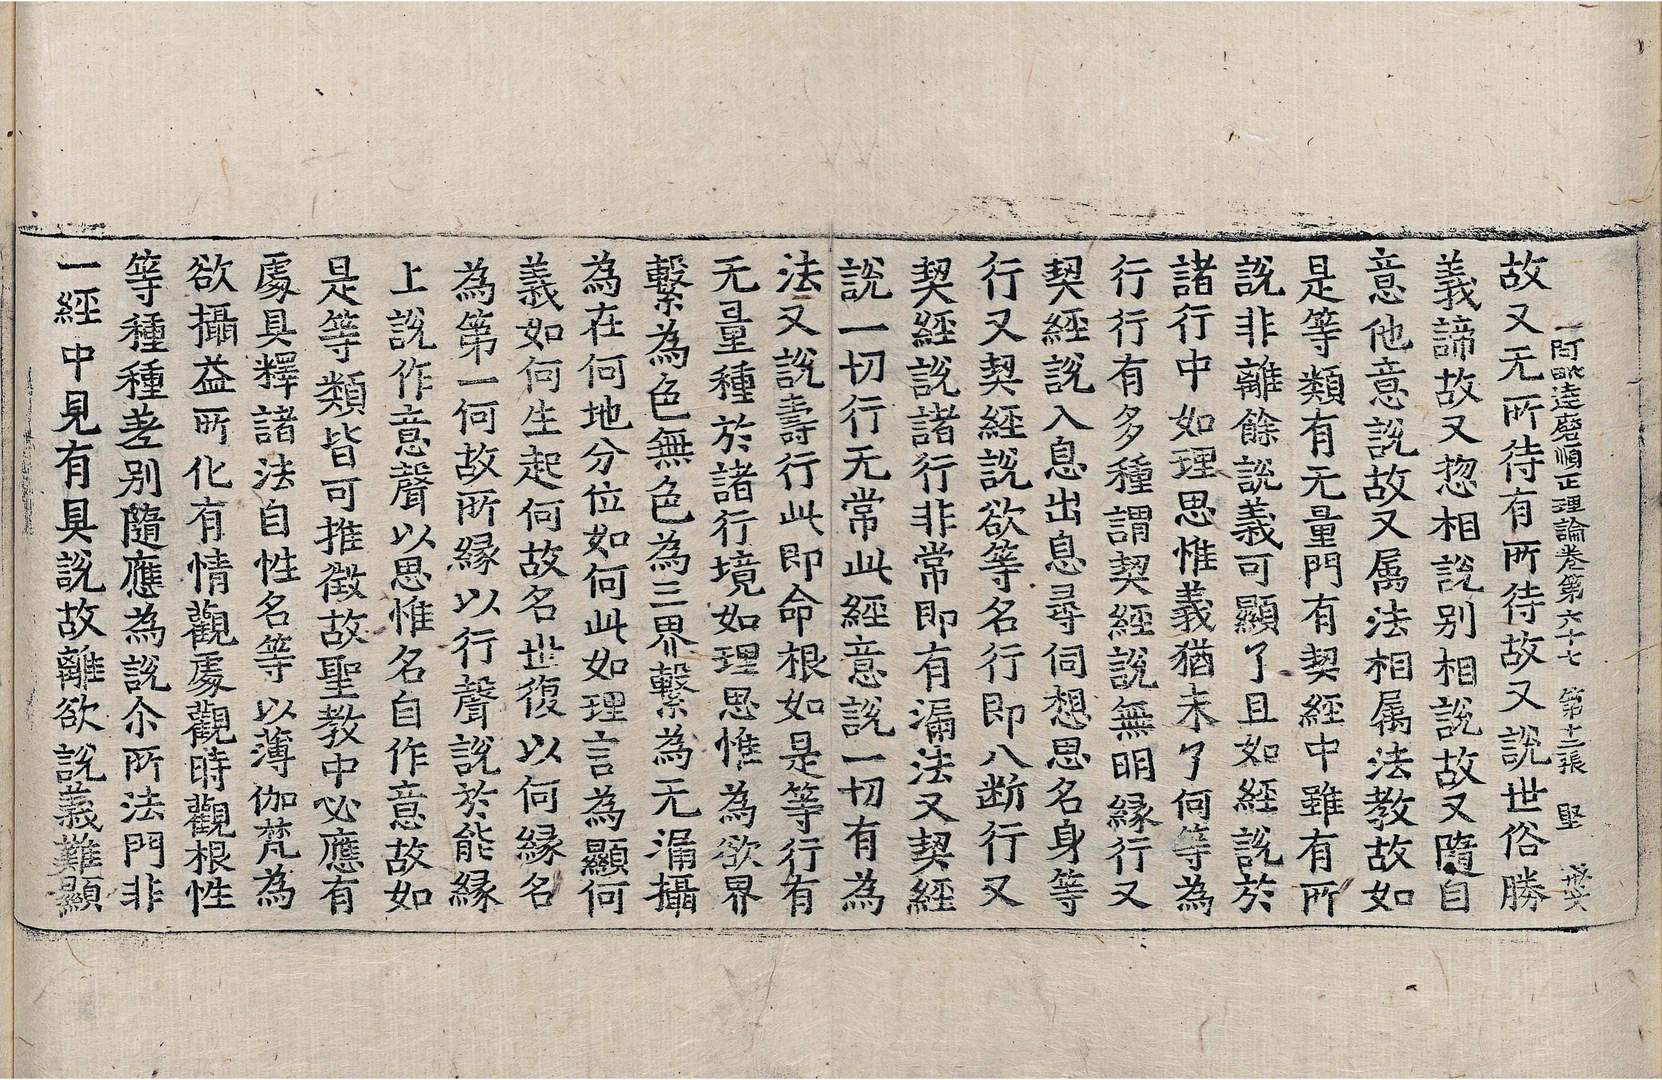 阿毗達磨順正理論卷第六十七 第十二張 堅
故又无所待有所待故又說世俗勝
義諦故又惣相說别相說故又隨自
意他意說故又属法相属法教故如
是等類有无量門有契經中雖有所
說非離餘說義可顯了且如經說於
諸行中如理思惟義猶未了何等為
行行有多種謂契經說無明縁行又
契經說入息出息尋伺想思名身等
行又契經說欲等名行即八断行又
契經說諸行非常即有漏法又契經
說一切行无常此經意說一切有為
法又說壽行此即命根如是等行有
无量種於諸行境如理思惟為欲界
繫為色無色為三界繫為无漏攝
為在何地分位如何此如理言為顯何
義如何生起何故名世復以何縁名
為第一何故所縁以行聲說於能縁
上說作意聲以思惟名自作意故如
是等類皆可推徵故聖教中必應有
處具釋諸法自性名等以薄伽梵為
欲攝益所化有情觀處觀時觀根性
等種種差别隨應為說尒所法門非
一經中見有具說故離欲說義難顯